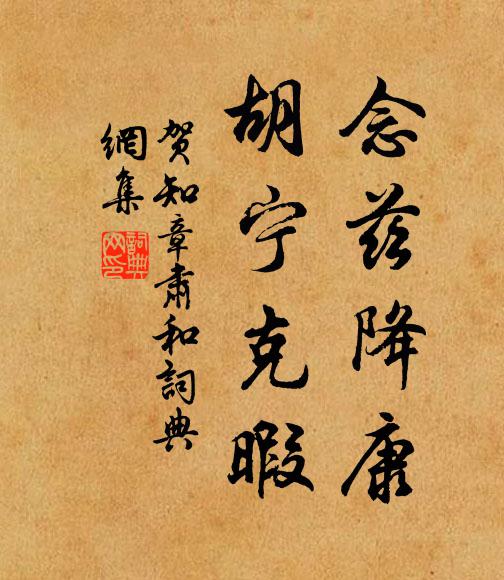 念兹降康
胡宁克暇
贺知章肃和詞典
網集
詞典
网印